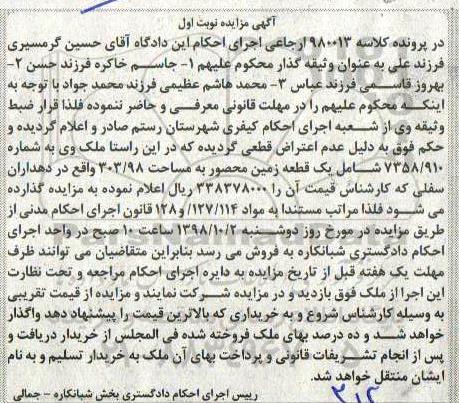 آگهی مزایده نوبت اول
در پرونده کلاسه ۹۸۰۰۱۳ ارجاعی اجرای احکام این دادگاه آقای حسین گرمسیری
فرزند علی به عنوان وثیقه گذار محکوم علیهم ۱- جاسم خاکره فرزند حسن ۲-
بهروز قاسمی فرزند عباس ۳- محمد هاشم عظیمی فرزند محمد جواد با توجه به
اینکه محکوم علیهم را در مهلت قانونی معرفی و حاضر ننموده فلذا قرار ضبط
وثیقه وی از شعبه اجرای احکام کیفری شهرستان رستم صادر و اعلام گردیده و
حکم فوق به دلیل عدم اعتراض قطعی گردیده که در این راستا ملک وی به شماره
۷۳۵۸/۹۱۰ شامل یک قطعه زمین محصور به مساحت ۳۰۳/۹۸ واقع در دهداران
سفلی که کارشناس قیمت آن را ۳۳۸۳۷۸۰۰۰ ریال اعلام نموده به مزایده گذارده
می شود فلذا مراتب مستندا به مواد ۱۲۷/۱۱۴/ و ۱۲۸ قانون اجرای احکام مدنی از
طریق مزایده در مورخ روز دوشنبه ۱۳۹۸/۱۰/۲ ساعت ۱۰ صبح در واحد اجرای
احکام دادگستری شبانکاره به فروش می رسد بنابراین متقاضیان می توانند ظرف
مهلت یک هفته قبل از تاریخ مزایده به دایره اجرای احکام مراجعه و تحت نظارت
این اجرا از ملک فوق بازدید و در مزایده شرکت نمایند و مزایده از قیمت تقریبی
به وسیله کارشناس شروع و به خریداری که بالاترین قیمت را پیشنهاد دهد واگذار
خواهد شد و ده درصد بهای ملک فروخته شده فی المجلس از خریدار دریافت و
پس از انجام تشریفات قانونی و پرداخت بهای آن ملک به خریدار تسلیم و به نام
ایشان منتقل خواهد شد.
رییس اجرای احکام دادگستری بخش شبانکاره - جمالی